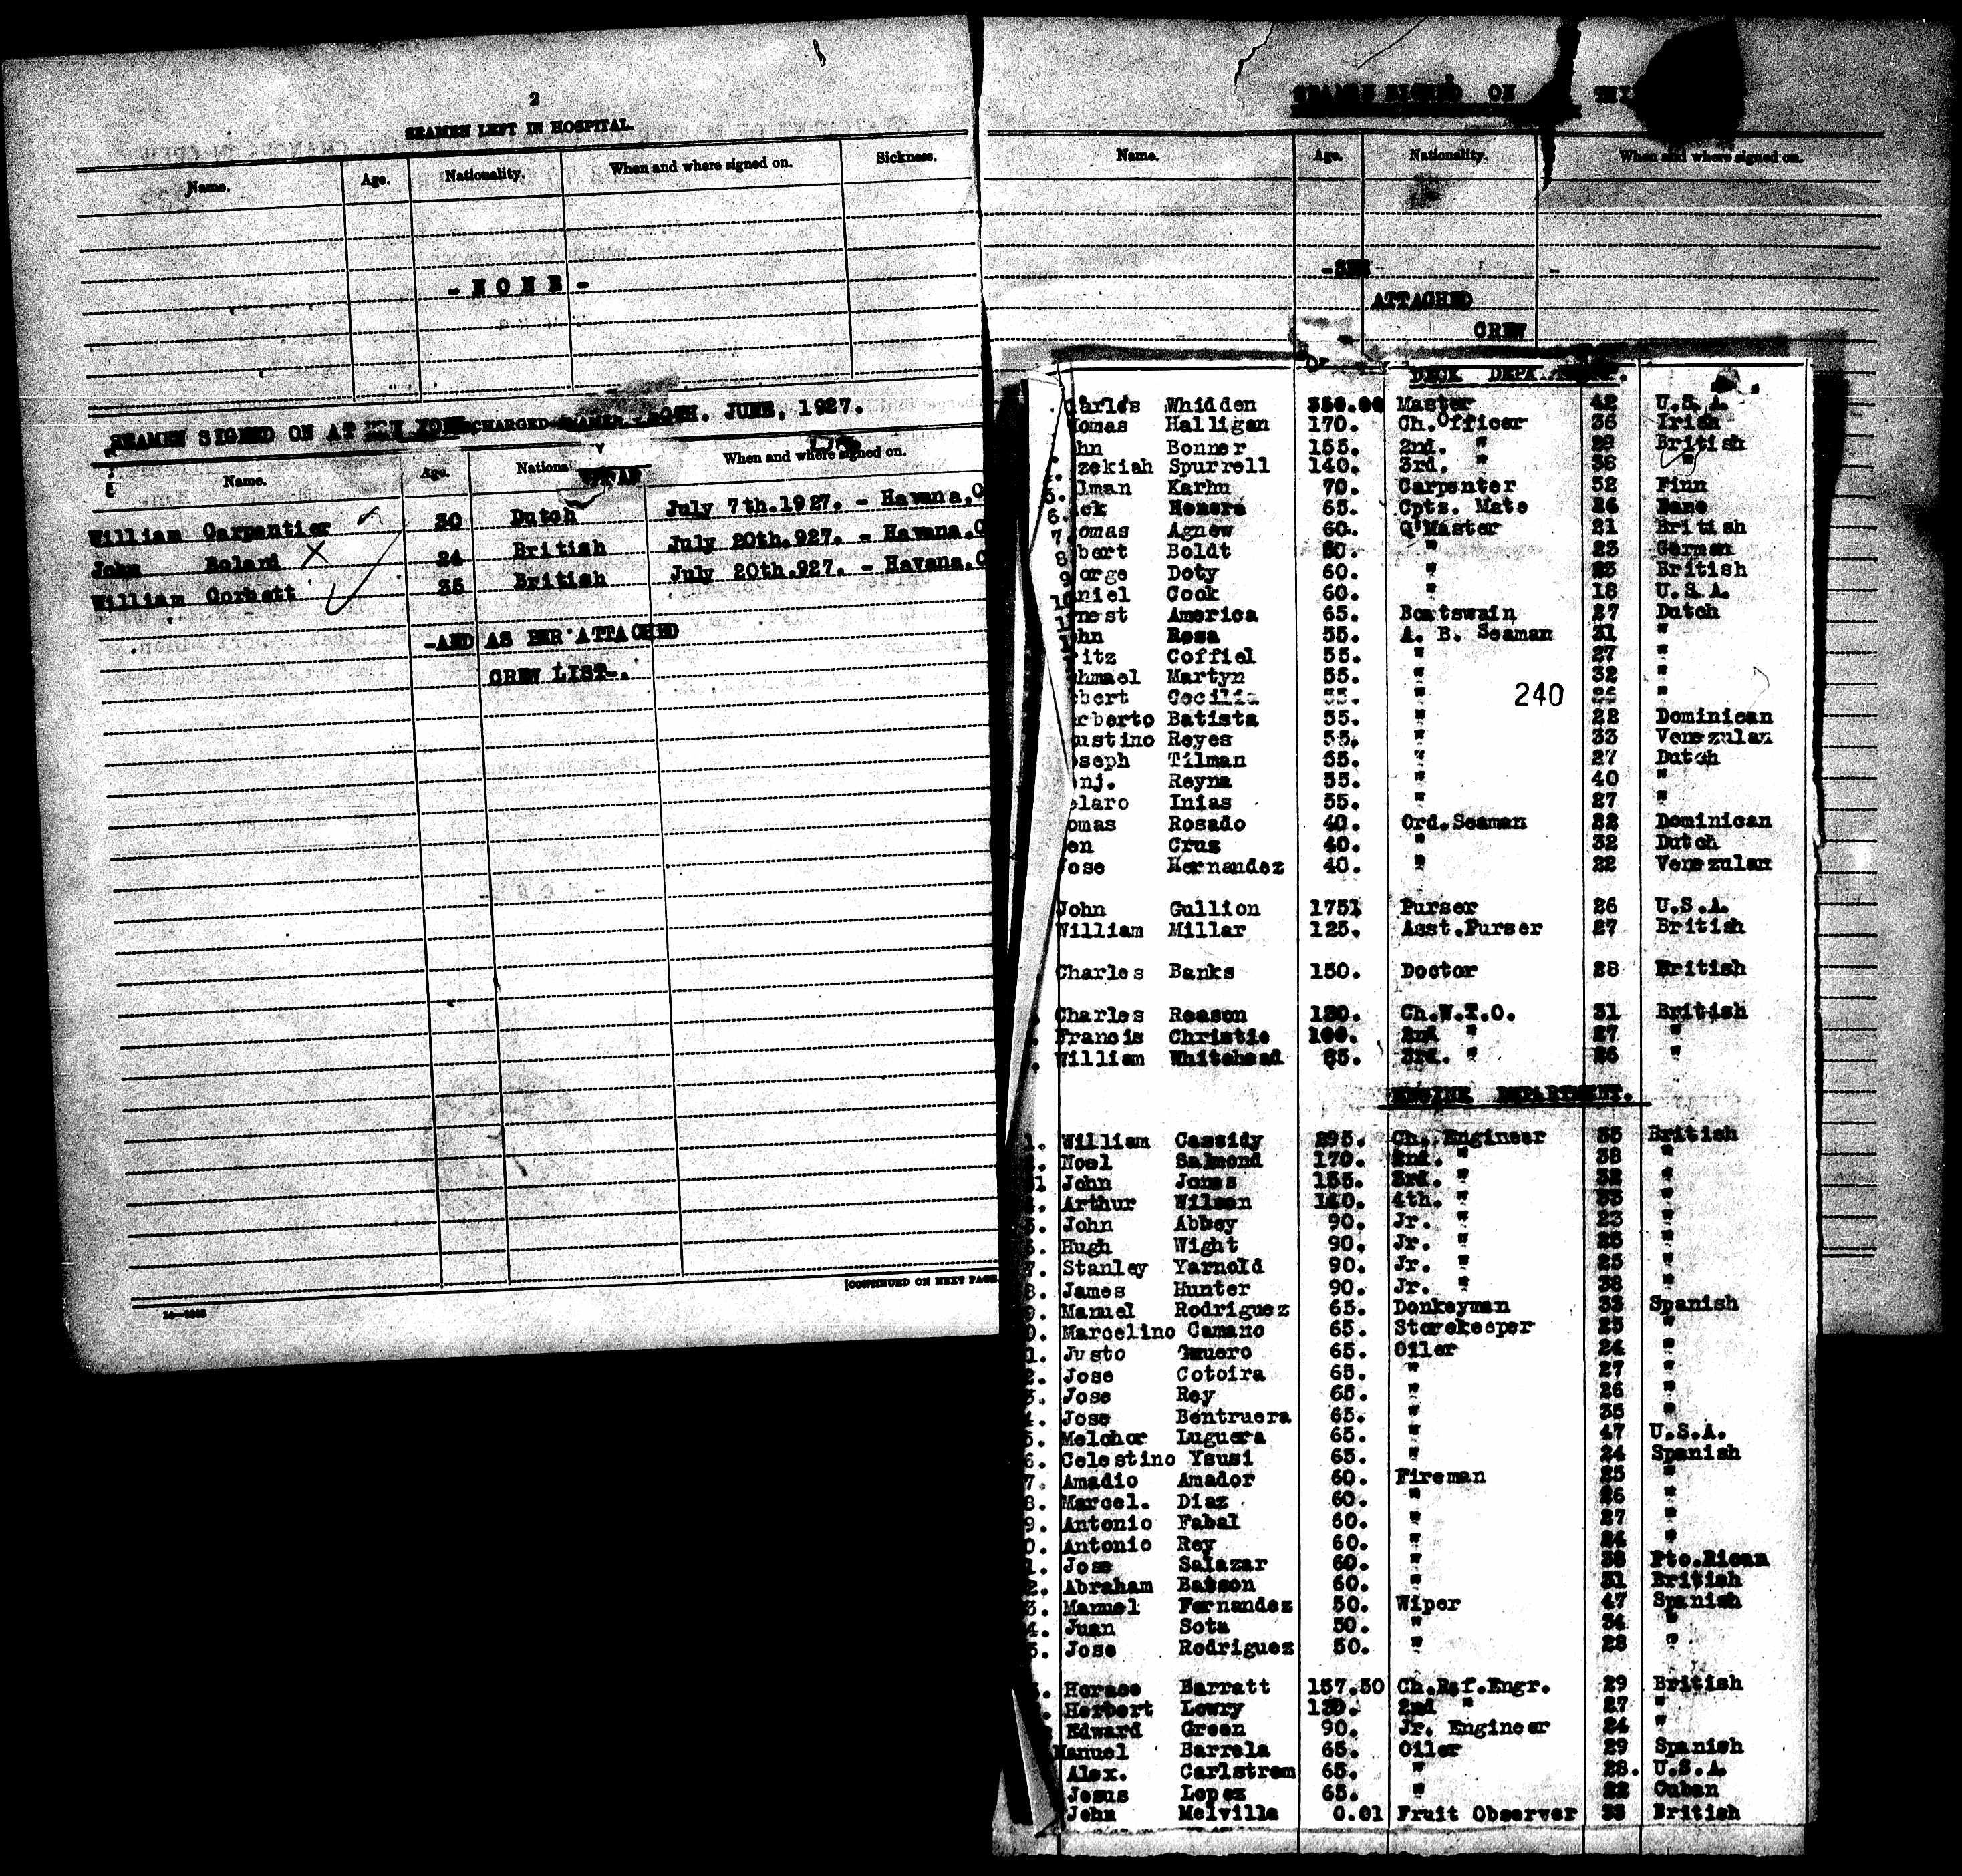 2
SEAMEN LEFT IN HOSPITAL.
Name. Age. Nationality. When and where signed on. Sickness.
- N O N E -
SEAMEN SIGNED ON AT JUNE, 1927.
Name. Age. When and where signed on.
William Carpentier 30 Dutch July 7th.1927. - Havana.
John Bolard X 24 British July 20th.927. - Havana.
William Corbett 35 British July 20th.927. - Havana.
-AND AS PER ATTACHED
CREW LIST-.
[CONTINUED ON NEXT PAGE
SEAMEN SIGNED ON
Name. Age. Nationality. When and where signed on.
-SEE -
ATTACHED
CREW
DECK
arles Whidden 350.00 Master 42 U.S.A.
omas Halligan 170. Ch.Officer 36 Irish
hn Bonner 155. 2nd. " 29 British
zekiah Spurrell 140. 3rd. " 38 "
5. lman Karhu 70. Carpenter 52 Finn
6. ck 65. Cpts. Mate 24 Dane
7. omas Agnew 60. Q'Master 21 British
8 bert Boldt 60. " 23 German
9 orge Doty 60. " 25 British
10 niel Cook 60. " 18 U.S.A.
nest America 65. Boatswain 27 Dutch
hn Rosa 55. A. B. Seaman 31 "
itz Coffiel 55. " 27 "
hmael Martyn 55. " 32 "
bert Cecilia 55. " 240 "
berto Batista 55. " 22 Dominican
ustino Reyes 55. " 33 Venezulan
oseph Tilman 55. " 27 Dutch
nj. Reyna 55. " 40 "
laro Inias 55. " 27 "
omas Rosado 40. Ord.Seaman 22 Dominican
en Cruz 40. " 32 Dutch
Jose Hernandez 40. " 22 Venezulan
John Gullion 175 Purser 26 U.S.A.
William Millar 125. Asst.Purser 27 British
Charles Banks 150. Doctor 28 British
Charles Reason 120. Ch.W.T.O. 31 British
Francis Christie 100. 2nd " 27 "
William Whitehead 85. 3rd. " 26 "
ENGINE DEPARTMENT.
1. William Cassidy 295. Ch. Engineer 35 British
Noel Salmond 170. 2nd. " 38 "
John Jones 155. 3rd. " 32 "
Arthur Wilson 140. 4th. " 33 "
John Abbey 90. Jr. " 23 "
Hugh Wight 90. Jr. " 25 "
7. Stanley Yarnold 90. Jr. " 25 "
8. James Hunter 90. Jr. " 38 "
9. Manuel Rodriguez 65. Donkeyman 33 Spanish
0. Marcelino Camano 65. Storekeeper 25 "
1. Justo 65. Oiler 24 "
2. Jose Cotoira 65. " 27 "
3. Jose Rey 65. " 26 "
4. Jose Bentruera 65. " 35 "
5. Melchor Luguera 65. " 47 U.S.A.
6. Celestino Ysusi 65. " 24 Spanish
7. Amadio Amador 60. Fireman 25 "
8. Marcel. Diaz 60. " 26 "
9. Antonio Fabal 60. " 27 "
0. Antonio Rey 60. " 24 "
1. Jose Salazar 60. " 38 Pto.Rican
2. Abraham Batson 60. " 31 British
3. Manuel Fernandez 50. Wiper 47 Spanish
4. Juan Sota 50. " 34 "
5. Jose Rodriguez 50. " 28 "
Horace Barratt 157.50 Ch.Ref.Engr. 29 British
Herbert Lowry 130. 2nd " 27 "
Edward Green 90. Jr. Engineer 24 "
Manuel Barrela 65. Oiler 29 Spanish
Alex. Carlstrom 65. " 28. U.S.A.
Jesus Lopez 65. " 22 Cuban
John Melville 0.01 Fruit Observer 33 British